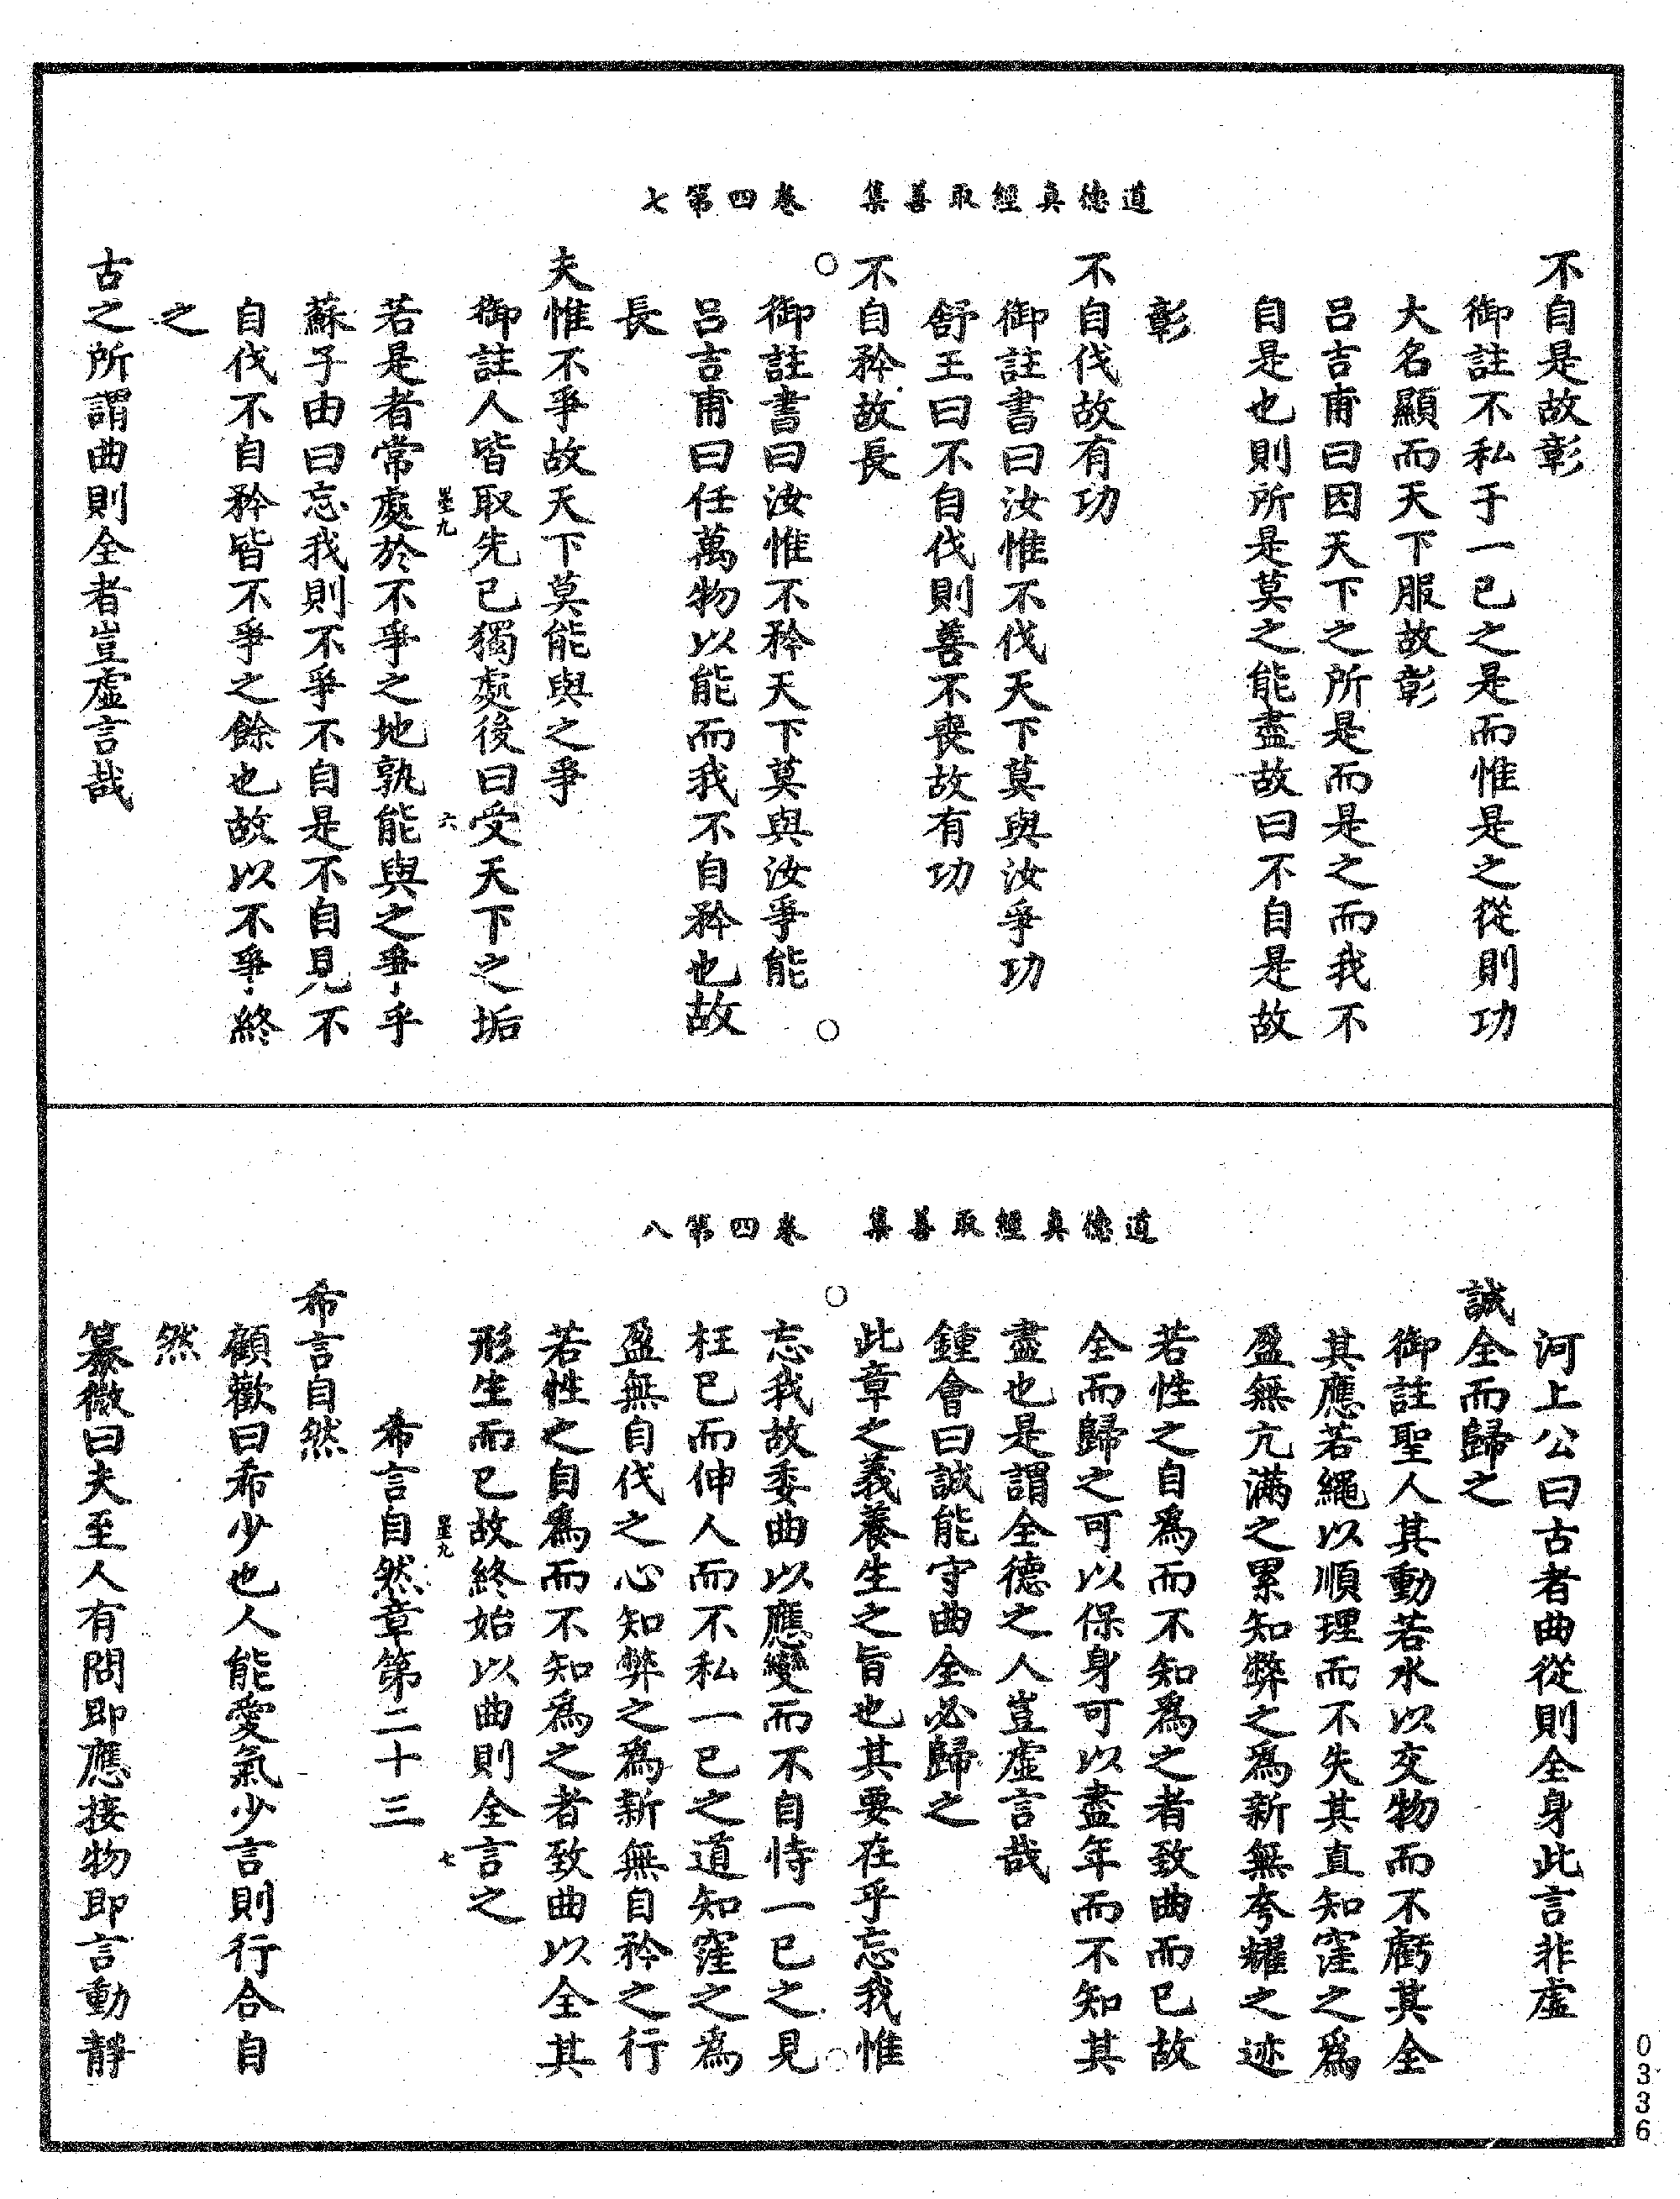 道德真經取善集　卷四第七
不自是故彰
御註不私于一已之是而惟是之從則功
大名顯而天下服故彰
呂吉甫曰因天下之所是而是之而我不
自是也則所是莫之能盡故曰不自是故
彰
不自伐故有功
御註書曰汝惟不伐天下莫與汝爭功
舒王曰不自伐則善不喪故有功
不自矜故長
御註書曰汝惟不矜天下莫與汝爭能
呂吉甫曰任萬物以能而我不自矜也故
長
夫惟不爭故天下莫能與之爭
御註人皆取先已獨處後曰受天下之垢
墨九　六
若是者常處於不爭之地孰能與之爭乎
蘇子由曰忘我則不爭不自是不自見不
自伐不自矜皆不爭之餘也故以不爭終
之
古之所謂曲則全者豈虛言哉
道德真經取善集　卷四第八
河上公曰古者曲從則全身此言非虛
誠全而歸之
御註聖人其動若水以交物而不虧其全
其應若繩以順理而不失其直知窪之爲
盈無亢滿之累知弊之爲新無夸耀之迹
若性之自爲而不知爲之者致曲而已故
全而歸之可以保身可以盡年而不知其
盡也是謂全德之人豈虛言哉
鍾會曰誠能守曲全必歸之
此章之義養生之旨也其要在乎忘我惟
忘我故委曲以應變而不自恃一已之見
枉已而伸人而不私一已之道知窪之爲
盈無自伐之心知弊之爲新無自矜之行
若性之自爲而不知爲之者致曲以全其
形生而已故終始以曲則全言之
墨九　七
希言自然章第二十三
希言自然
顧歡曰希少也人能愛氣少言則行合自
然
纂微曰夫至人有問即應接物即言動靜
0336